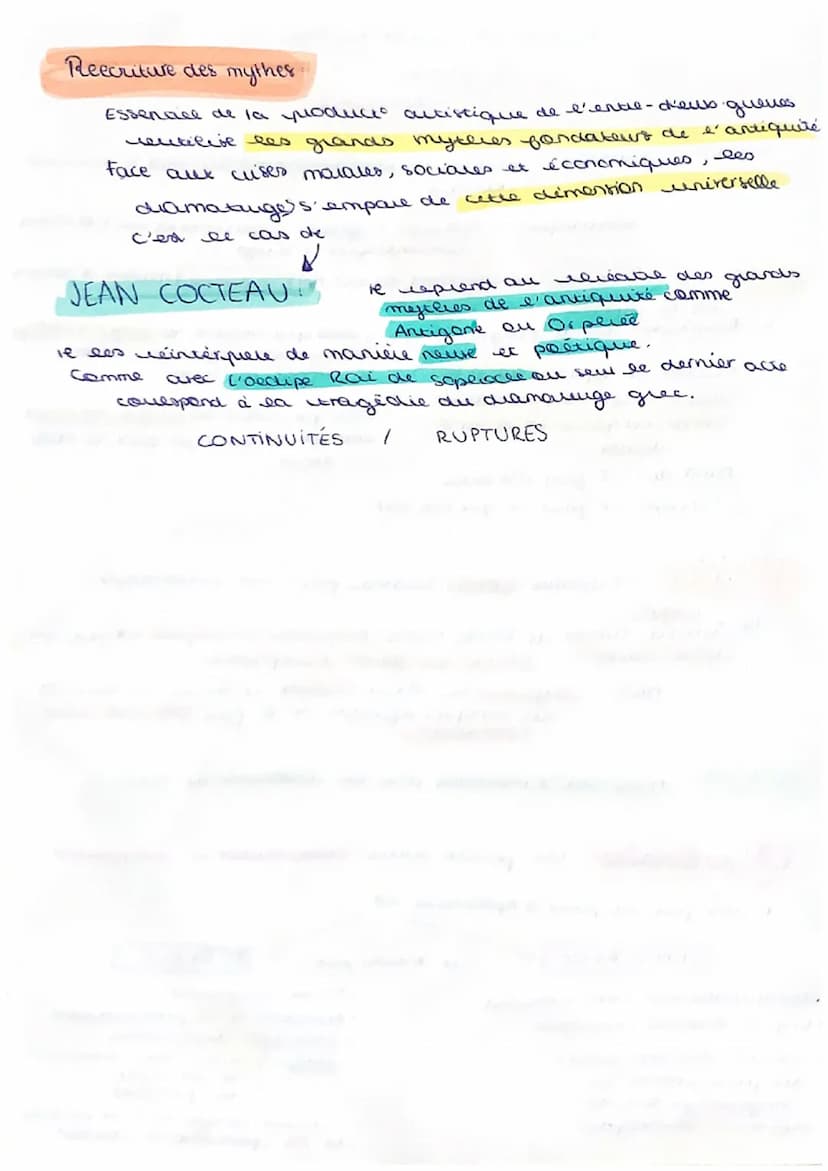 Reecriture des mythes
Essentiel de la product° artistique de l'entre-deux guerres
reutilise les grands mythes fondateurs de l'antiquité
Face aux crises morales, sociales et économiques, les
dramaturges s'empare de cette dimension universelle
c'est le cas de
JEAN COCTEAU:
il reprend au des grands
mythes de l'antiquité comme
Antigone ou Orphée
il les réinterprete de manière neuve et poétique.
Comme avec l'oedipe Roi de sophocle ou seul le dernier acte
correspond à la tragédie du dramaturge grec.
CONTINUITÉS / RUPTURES